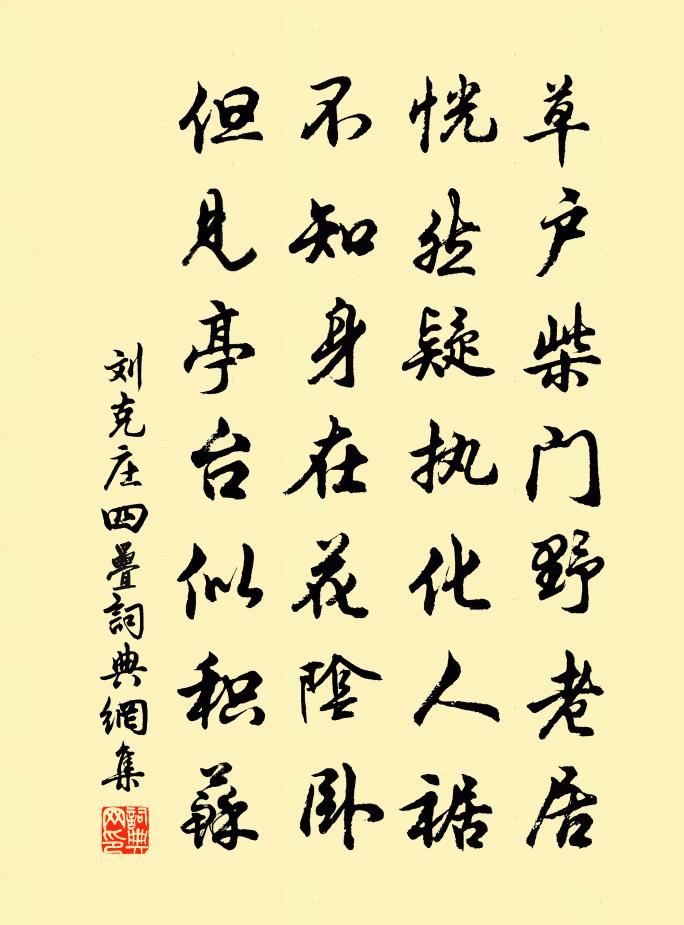 草户柴门野老居
恍然疑执化人裾
不知身在花陰卧
但见亭台似积蘇
刘克庄四疊詞典網集
詞典网印